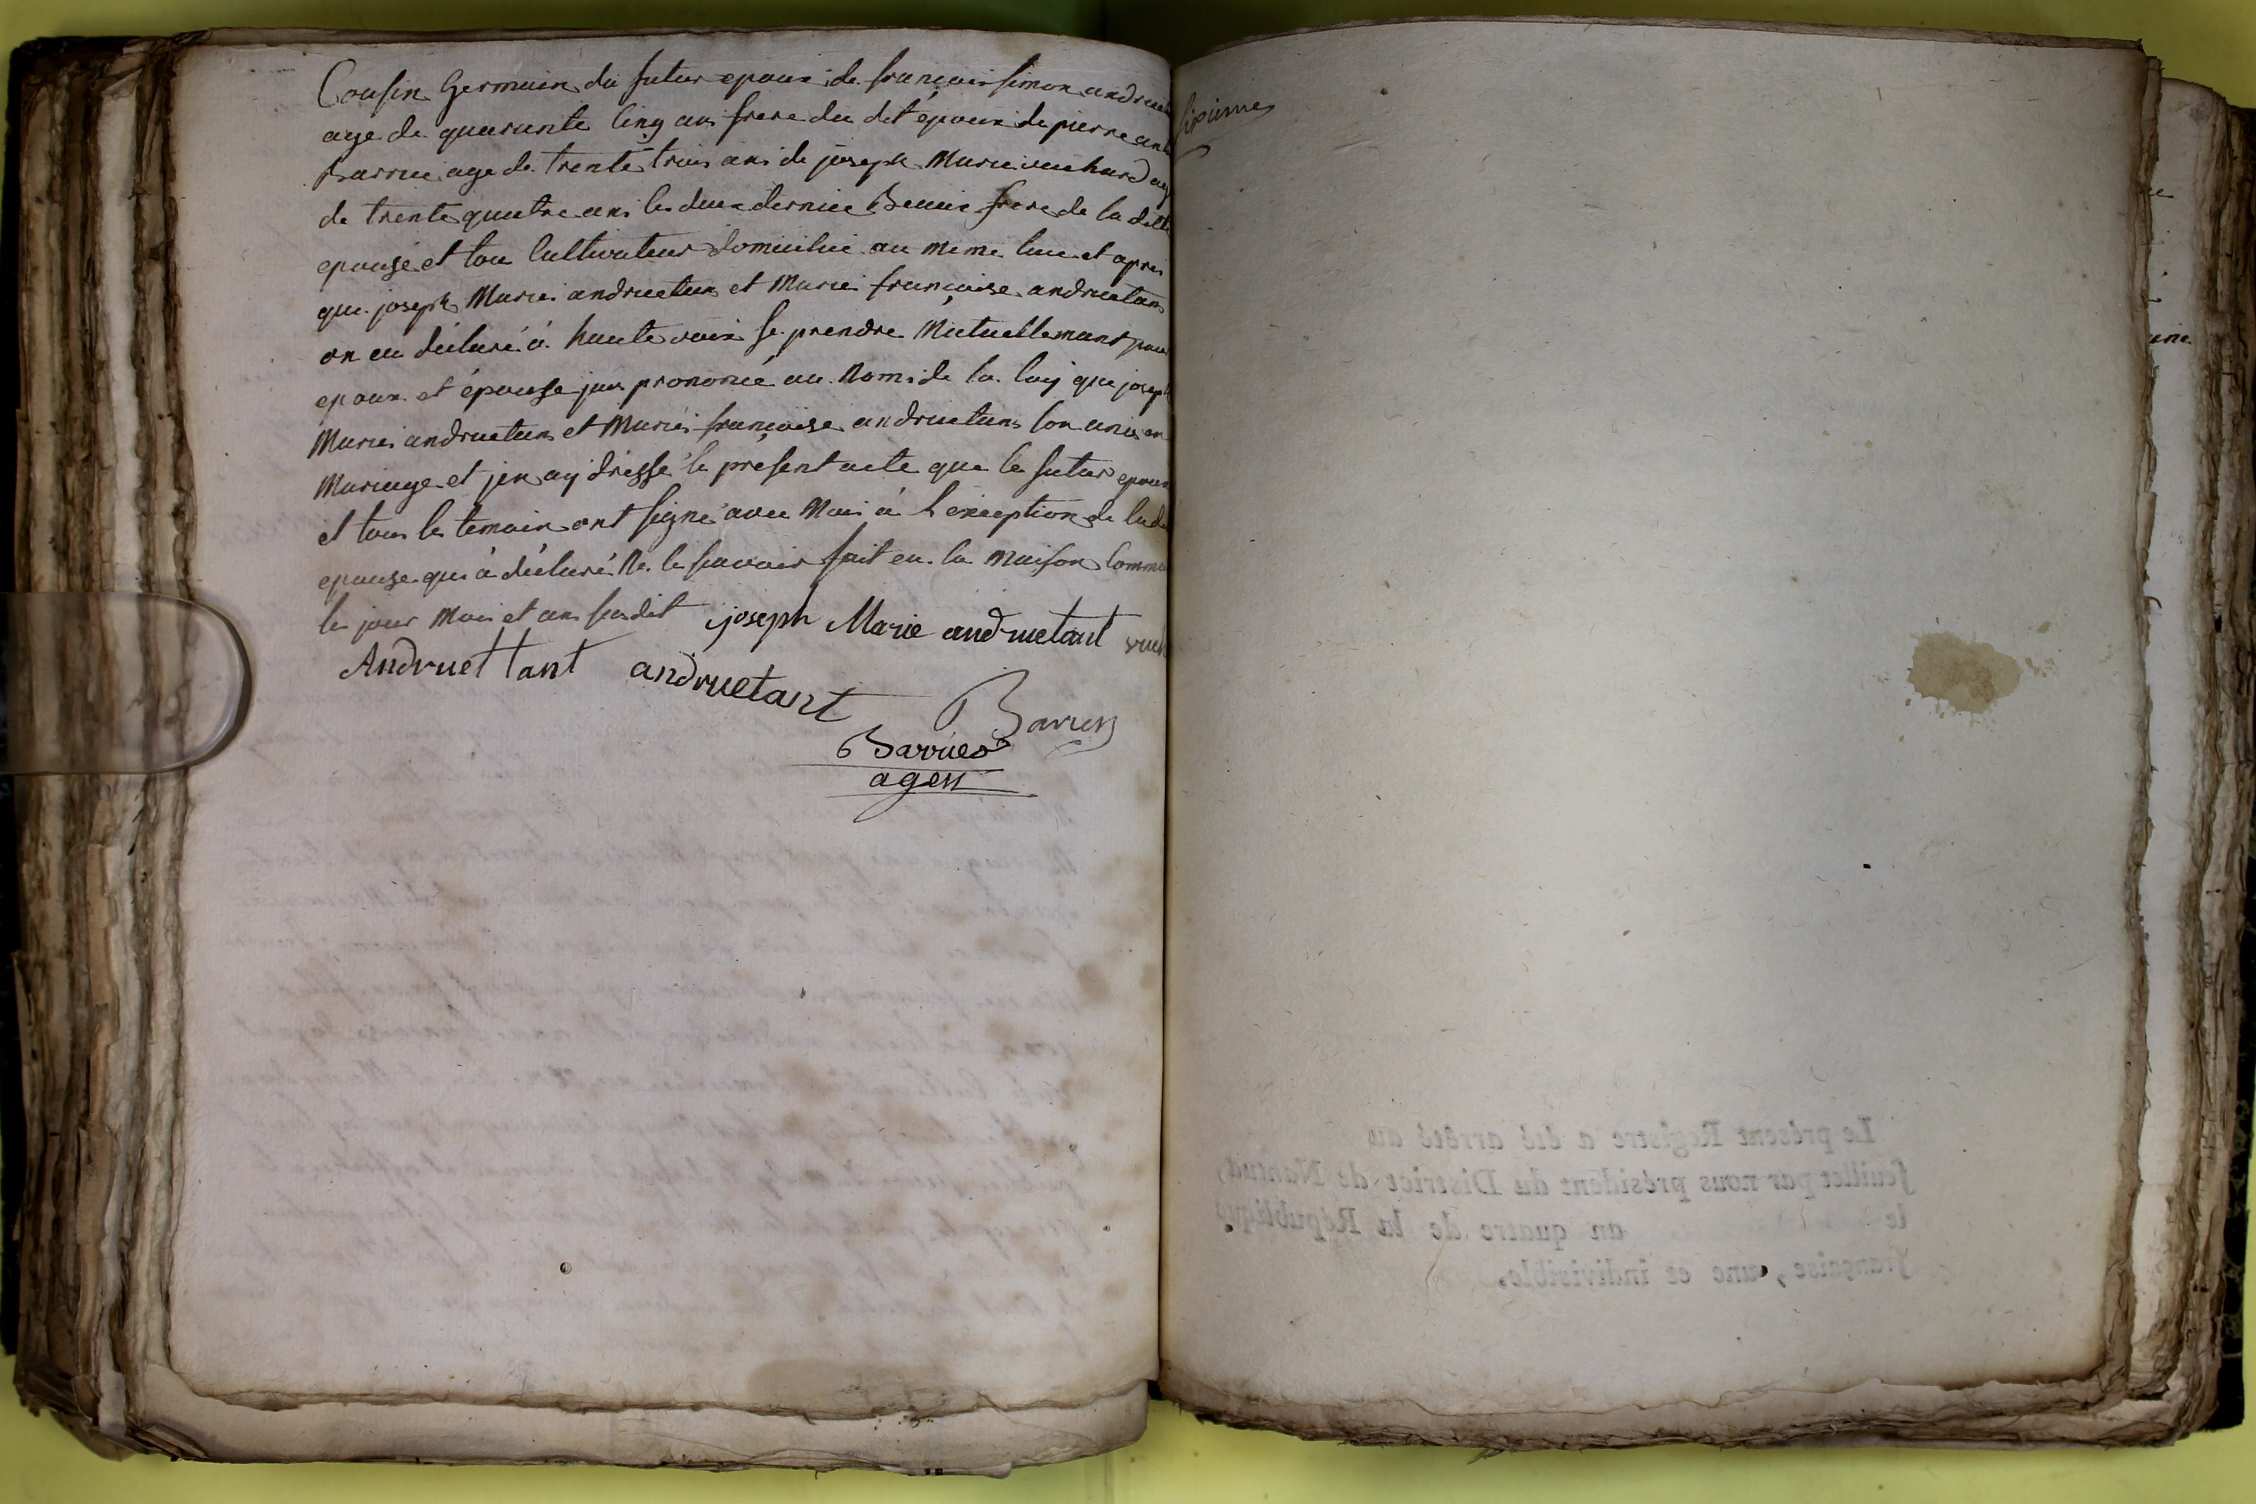 Cousin Germain du futur epoux de françois simon andruet
age de quarante cinq ans frere du dit époux de pierre
Barrue age de trente trois ans de joseph Marie vuchard
de trente quatre ans les deux dernier Beaux frere de la ditte
epouse et tou Cultivateur domicilié au meme lieu et apres
que joseph Marie andruetans et Marie françoise andruetans
on au déclaré á haute voix se prendre Mutuellemant pour
epoux et épouse jax prononcé au Noms de la loy que joseph
Marie andruetans et Marie françoise andruetans son unis en
Mariage et jen ay dressé le present acte que le futur epoux
et tous les temoin ont signé avec Moi á l'exception de lad
epouse qui á déclaré Ne le scavoir fait en la Maison Commu
les jour Moi et ans susdit joseph Marie andruetant vuch
Andruettant andruetant
Barrues
agen
Le présent Registre a été arrêté au
feuillet par nous président du District de Nantua,
le an quatre de la République
française, une et indivisible.